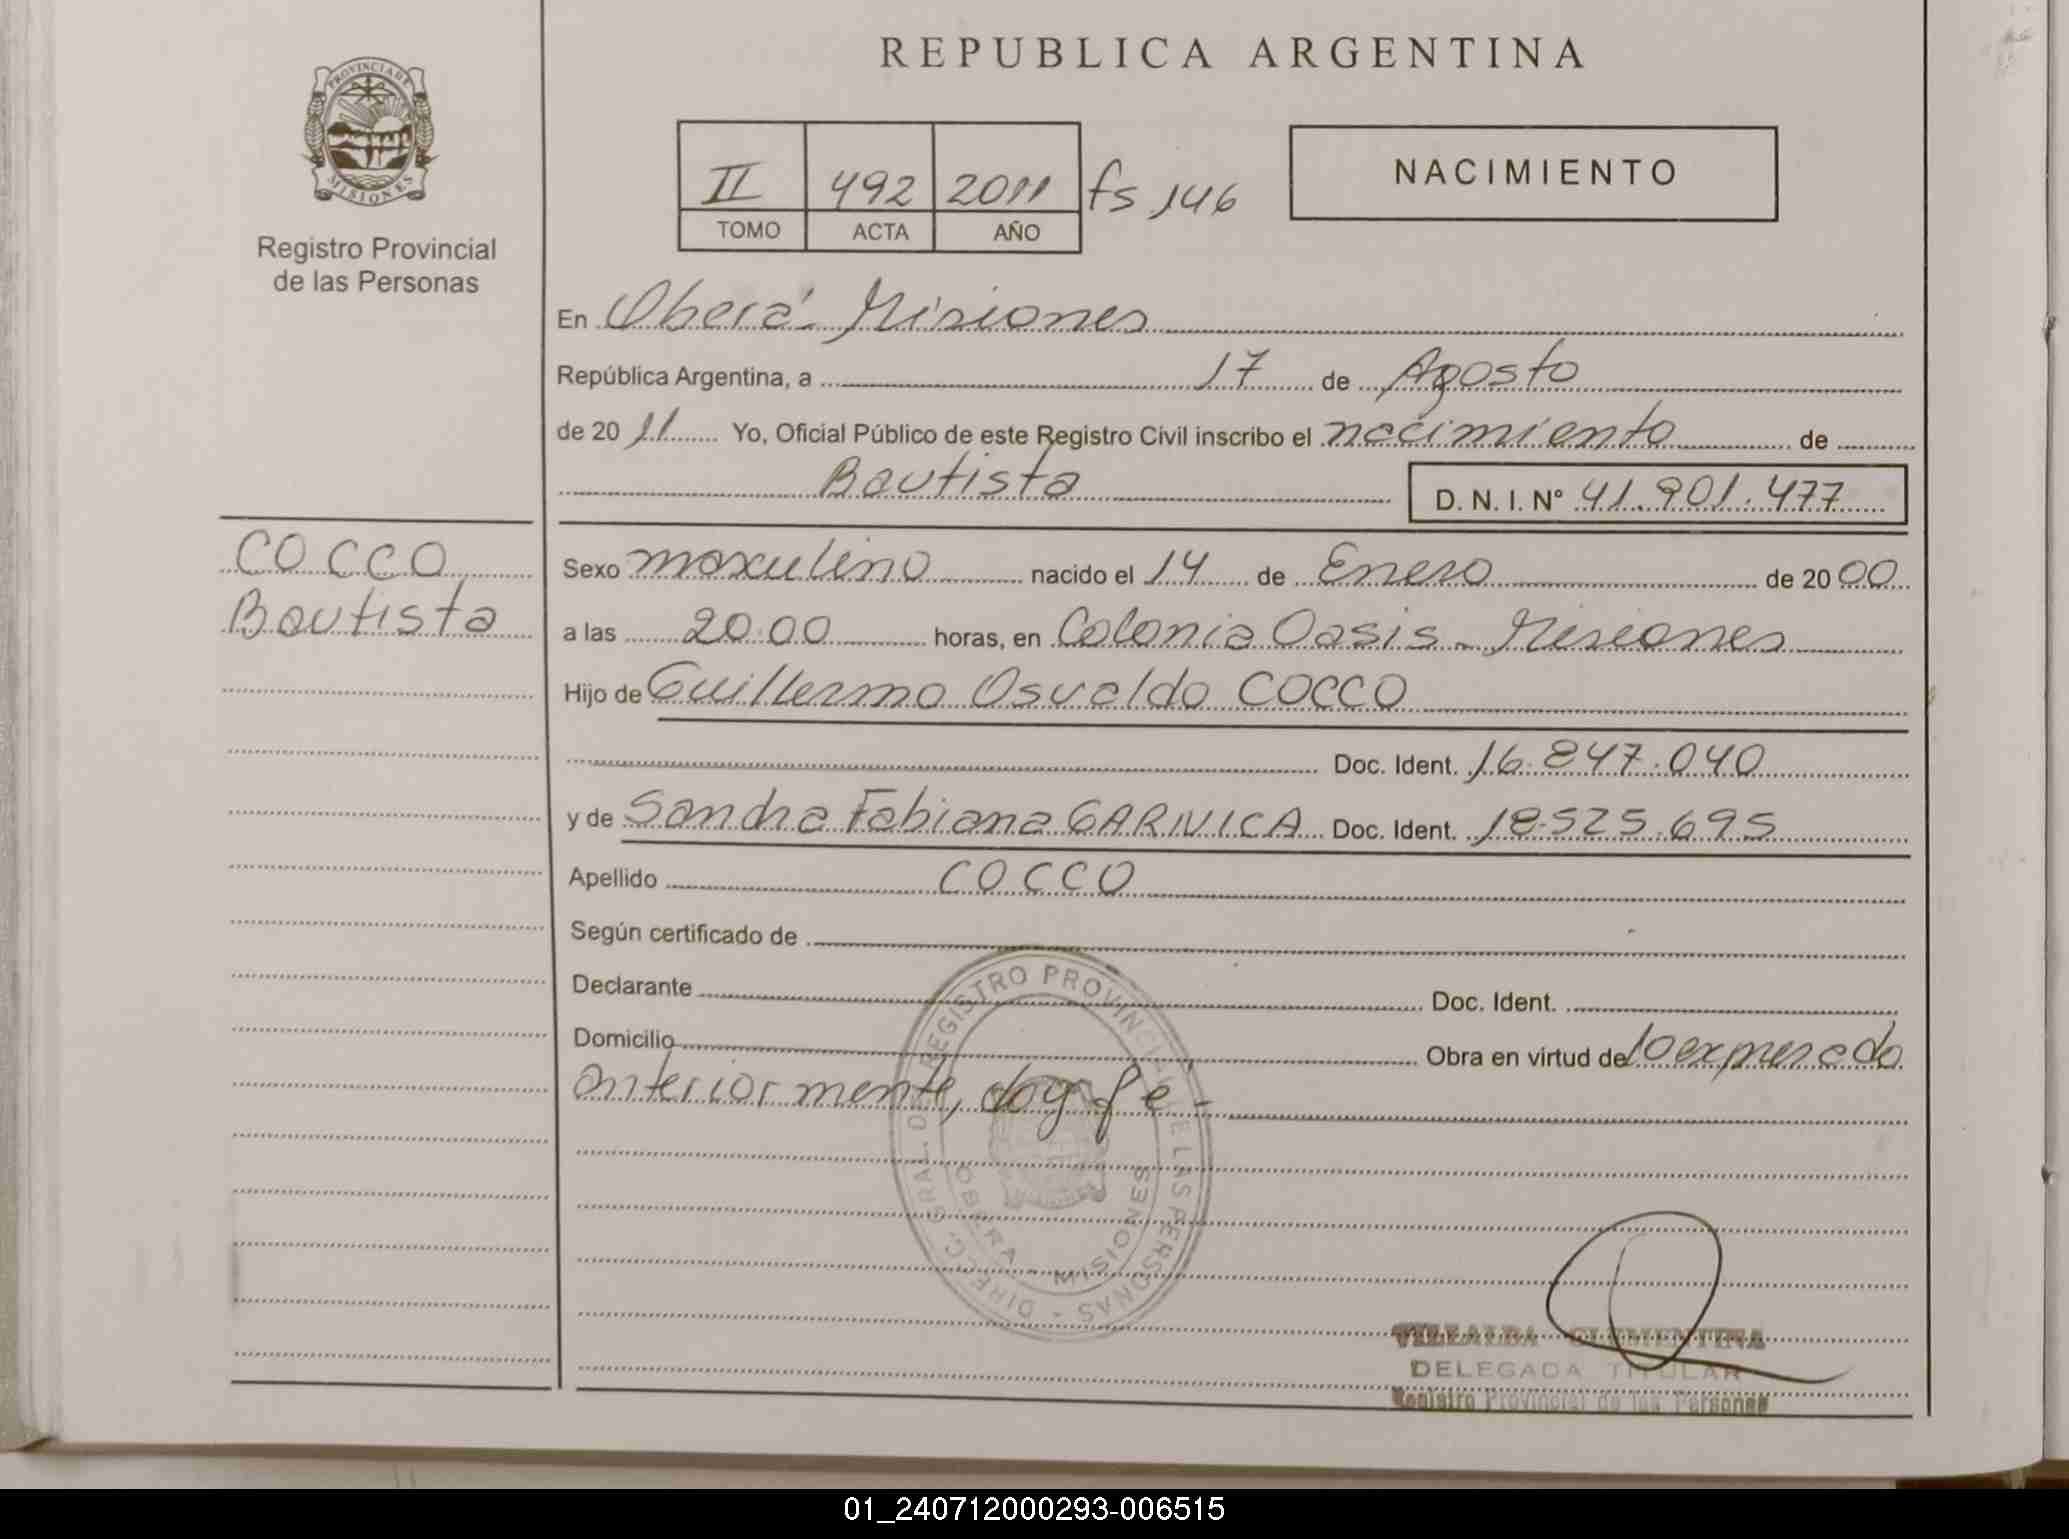 PROVINCIA DE
MISIONES
Registro Provincial
de las Personas
COCCO
Bautista
REPUBLICA ARGENTINA
II 492 2011 fs 146
TOMO ACTA AÑO
NACIMIENTO
En Oberá - Misiones
República Argentina, a 17 de Agosto
de 2011 Yo, Oficial Público de este Registro Civil inscribo el nacimiento de
Bautista D. N. I. Nº 41.901.477
Sexo masculino nacido el 14 de Enero de 2000
a las 20:00 horas, en Colonia Oasis - Misiones
Hijo de Guillermo Osvaldo COCCO
Doc. Ident. 16.847.040
y de Sandra Fabiana GARNICA Doc. Ident. 18.525.695
Apellido COCCO
Según certificado de
Declarante Doc. Ident.
Domicilio Obra en virtud de lo expresado
anteriormente, doy fé -
DIRECC. GRAL. DE REGISTRO PROVINCIAL DE LAS PERSONAS -
OBERA - MISIONES
VILLALBA CLEMENTINA
DELEGADA TITULAR
Registro Provincial de las Personas
01_240712000293-006515